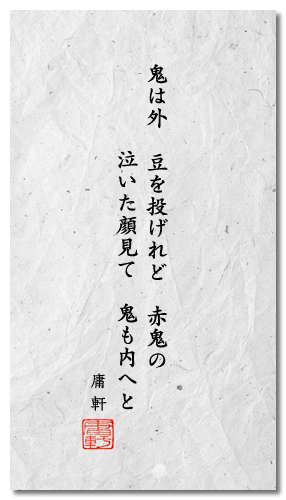 鬼は外　豆を投げれど　赤鬼の
泣いた顔見て　鬼も内へと
庸軒